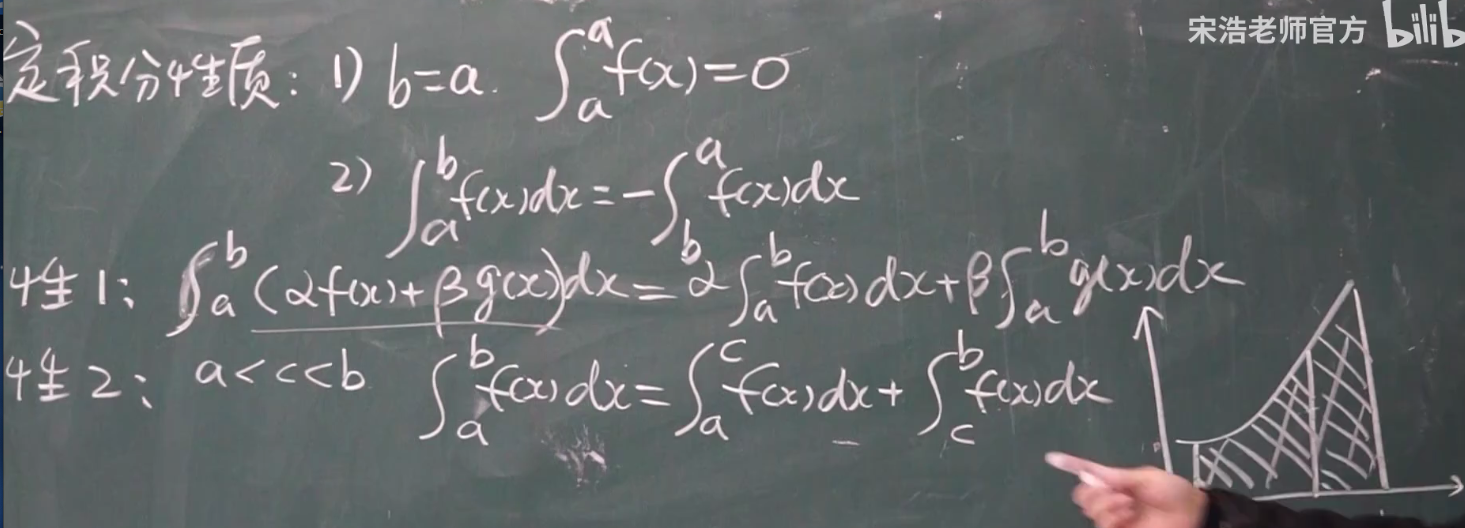 宋浩老师官方 bilib
定积分性质: 1) b=a. ∫ₐᵃ f(x)=0
2) ∫ₐᵇ f(x)dx=-∫_bᵃ f(x)dx
性1: ∫ₐᵇ (αf(x)+βg(x))dx=α∫ₐᵇ f(x)dx+β∫ₐᵇ g(x)dx
性2: a<c<b ∫ₐᵇ f(x)dx=∫ₐᶜ f(x)dx+∫_cᵇ f(x)dx